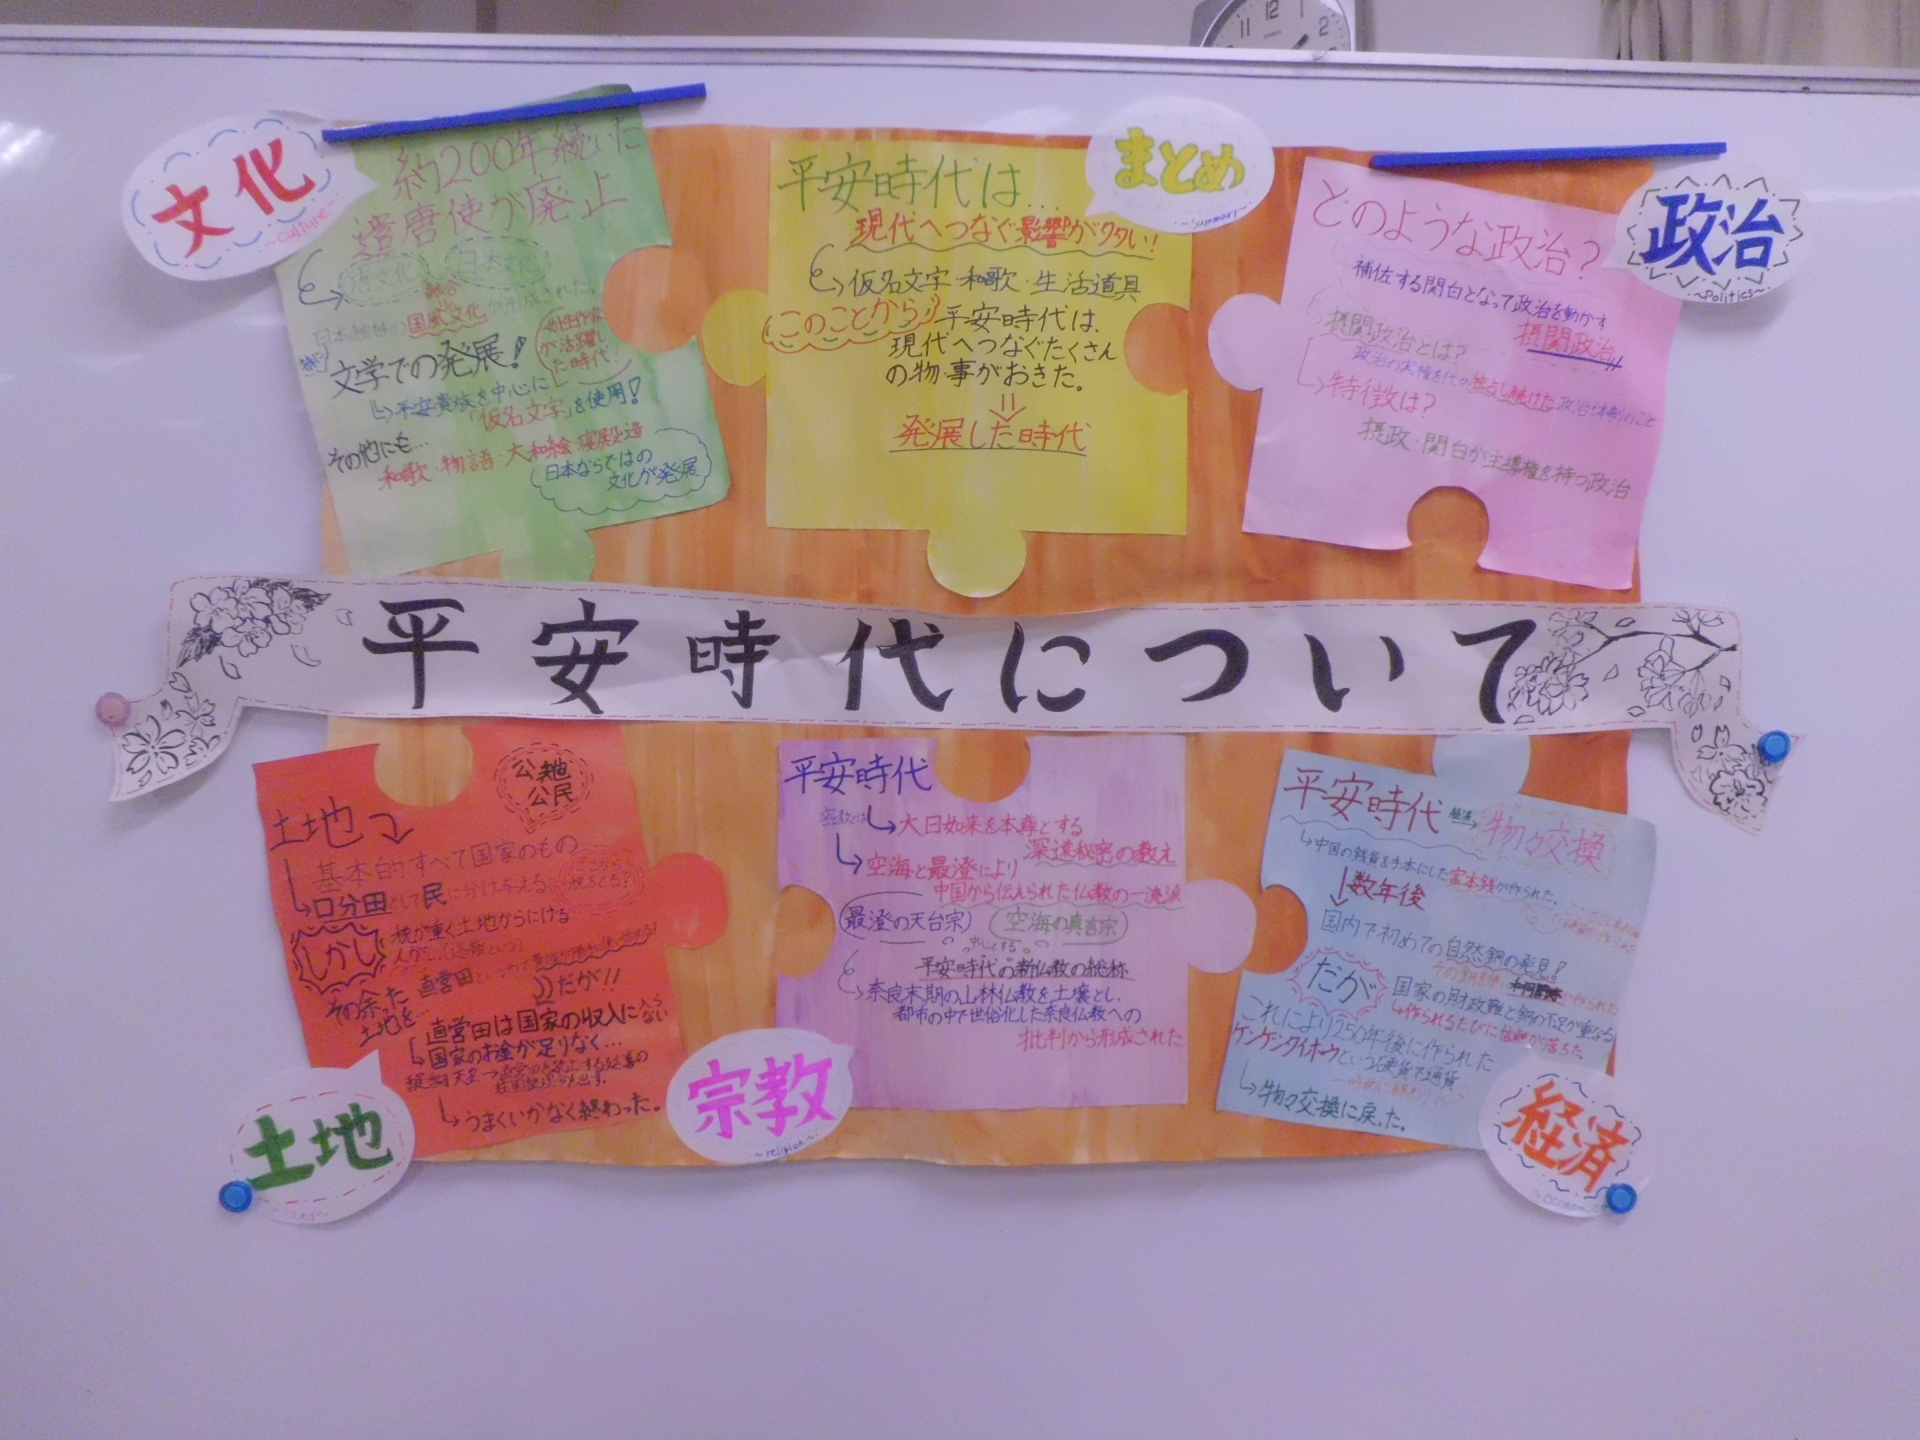 文化
~culture~
約200年続いた
遣唐使が廃止
唐文化
日本文化
融合
日本独特の国風文化が形成された
女性作家
が活躍し
た時代!
特に
文学での発展!
↳平安貴族を中心に
「仮名文字」を使用!
その他にも…
和歌・物語・大和絵・寝殿造
日本ならではの
文化が発展
まとめ
~summary~
平安時代は…
現代へつなぐ影響がタタい!
仮名文字・和歌・生活道具
このことから
平安時代は、
現代へつなぐたくさん
の物・事がおきた。
発展した時代
政治
~Politics~
どのような政治?
補佐する関白となって政治を動かす
摂関政治
摂関政治とは?
政治の実権を代々独占し続けた政治体制のこと
特徴は?
摂政・関白が主導権を持つ政治
平安時代について
土地
公地
公民
土地
基本的すべて国家のもの
口分田として民に分け与える
税をとる!
しかし
税が重く土地からにげる
人が…
その余った
土地を…
直営田
だが!!
直営田は国家の収入に入らない
国家のお金が足りなく…
うまくいかなく終わった。
宗教
~religion~
平安時代
密教とは
大日如来を本尊とする
深遠秘密の教え
空海と最澄により
中国から伝えられた仏教の一流派
最澄の天台宗
空海の真言宗
中心とする
平安時代の新仏教の総称
奈良末期の山林仏教を土壌とし、
都市の中で世俗化した奈良仏教への
批判から形成された
経済
~economic~
平安時代
経済
物々交換
中国の銭貨を手本にした富本銭が作られた。
数年後
国内で初めての自然銅の発見!
だが
国家の財政難と銅の不足が重なる
作られるたびに信頼が落ちた
これにより250年後に作られた
ケンゲンタイホウという硬貨で通貨
物々交換に戻った。